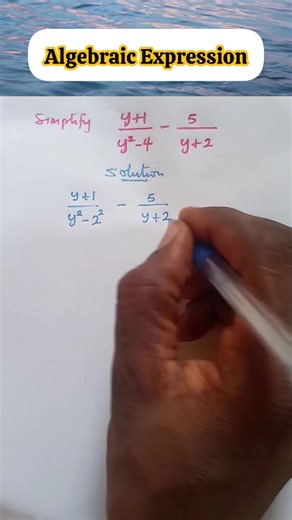 Algebraic Expression
Simplify (y+1)/(y²-4) - 5/(y+2)
Solution
(y+1)/(y²-2²) - 5/(y+2)